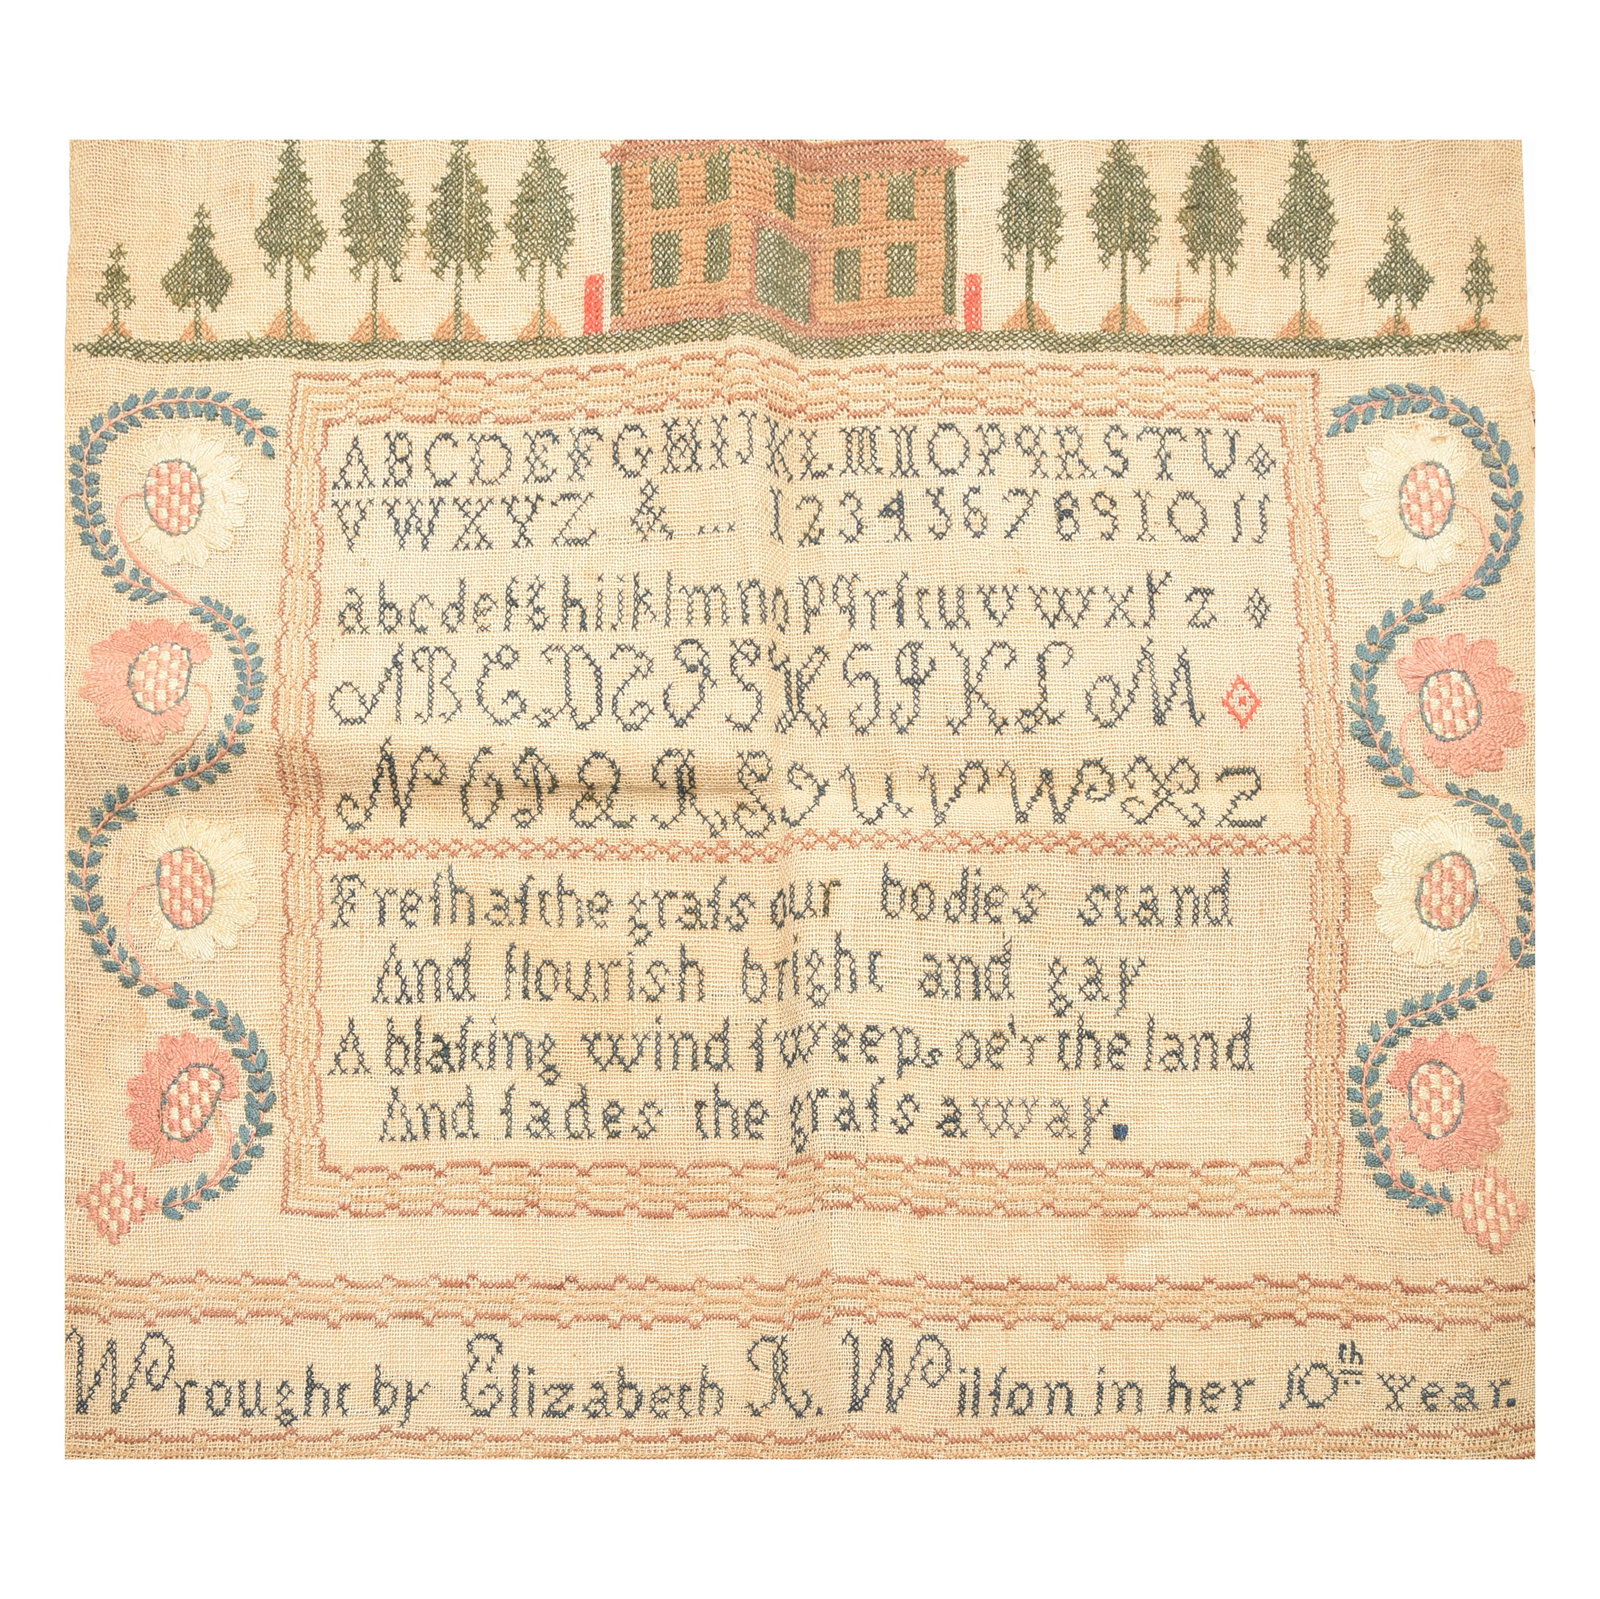 ABCDEFGHIJKLMNOPQRSTU
VWXYZ & ... 1 2 3 4 5 6 7 8 9 10 11
abcdefghijklmnopqrſstuvwxyz
ABCDEFGHIJKLM
NOPQRSTUVWXZ
Freſh aſ the graſs our bodies stand
And flourish bright and gay
A blaſing wind ſweeps oe'r the land
And fades the graſs away.
Wrought by Elizabeth A. Wilſon in her 10th year.